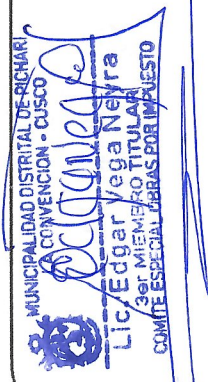 MUNICIPALIDAD DISTRITAL DE PICHARI
LA CONVENCION - CUSCO
Lic. Edgar Vega Neyra
3er MIEMBRO TITULAR
COMITÉ ESPECIAL OBRAS POR IMPUESTO